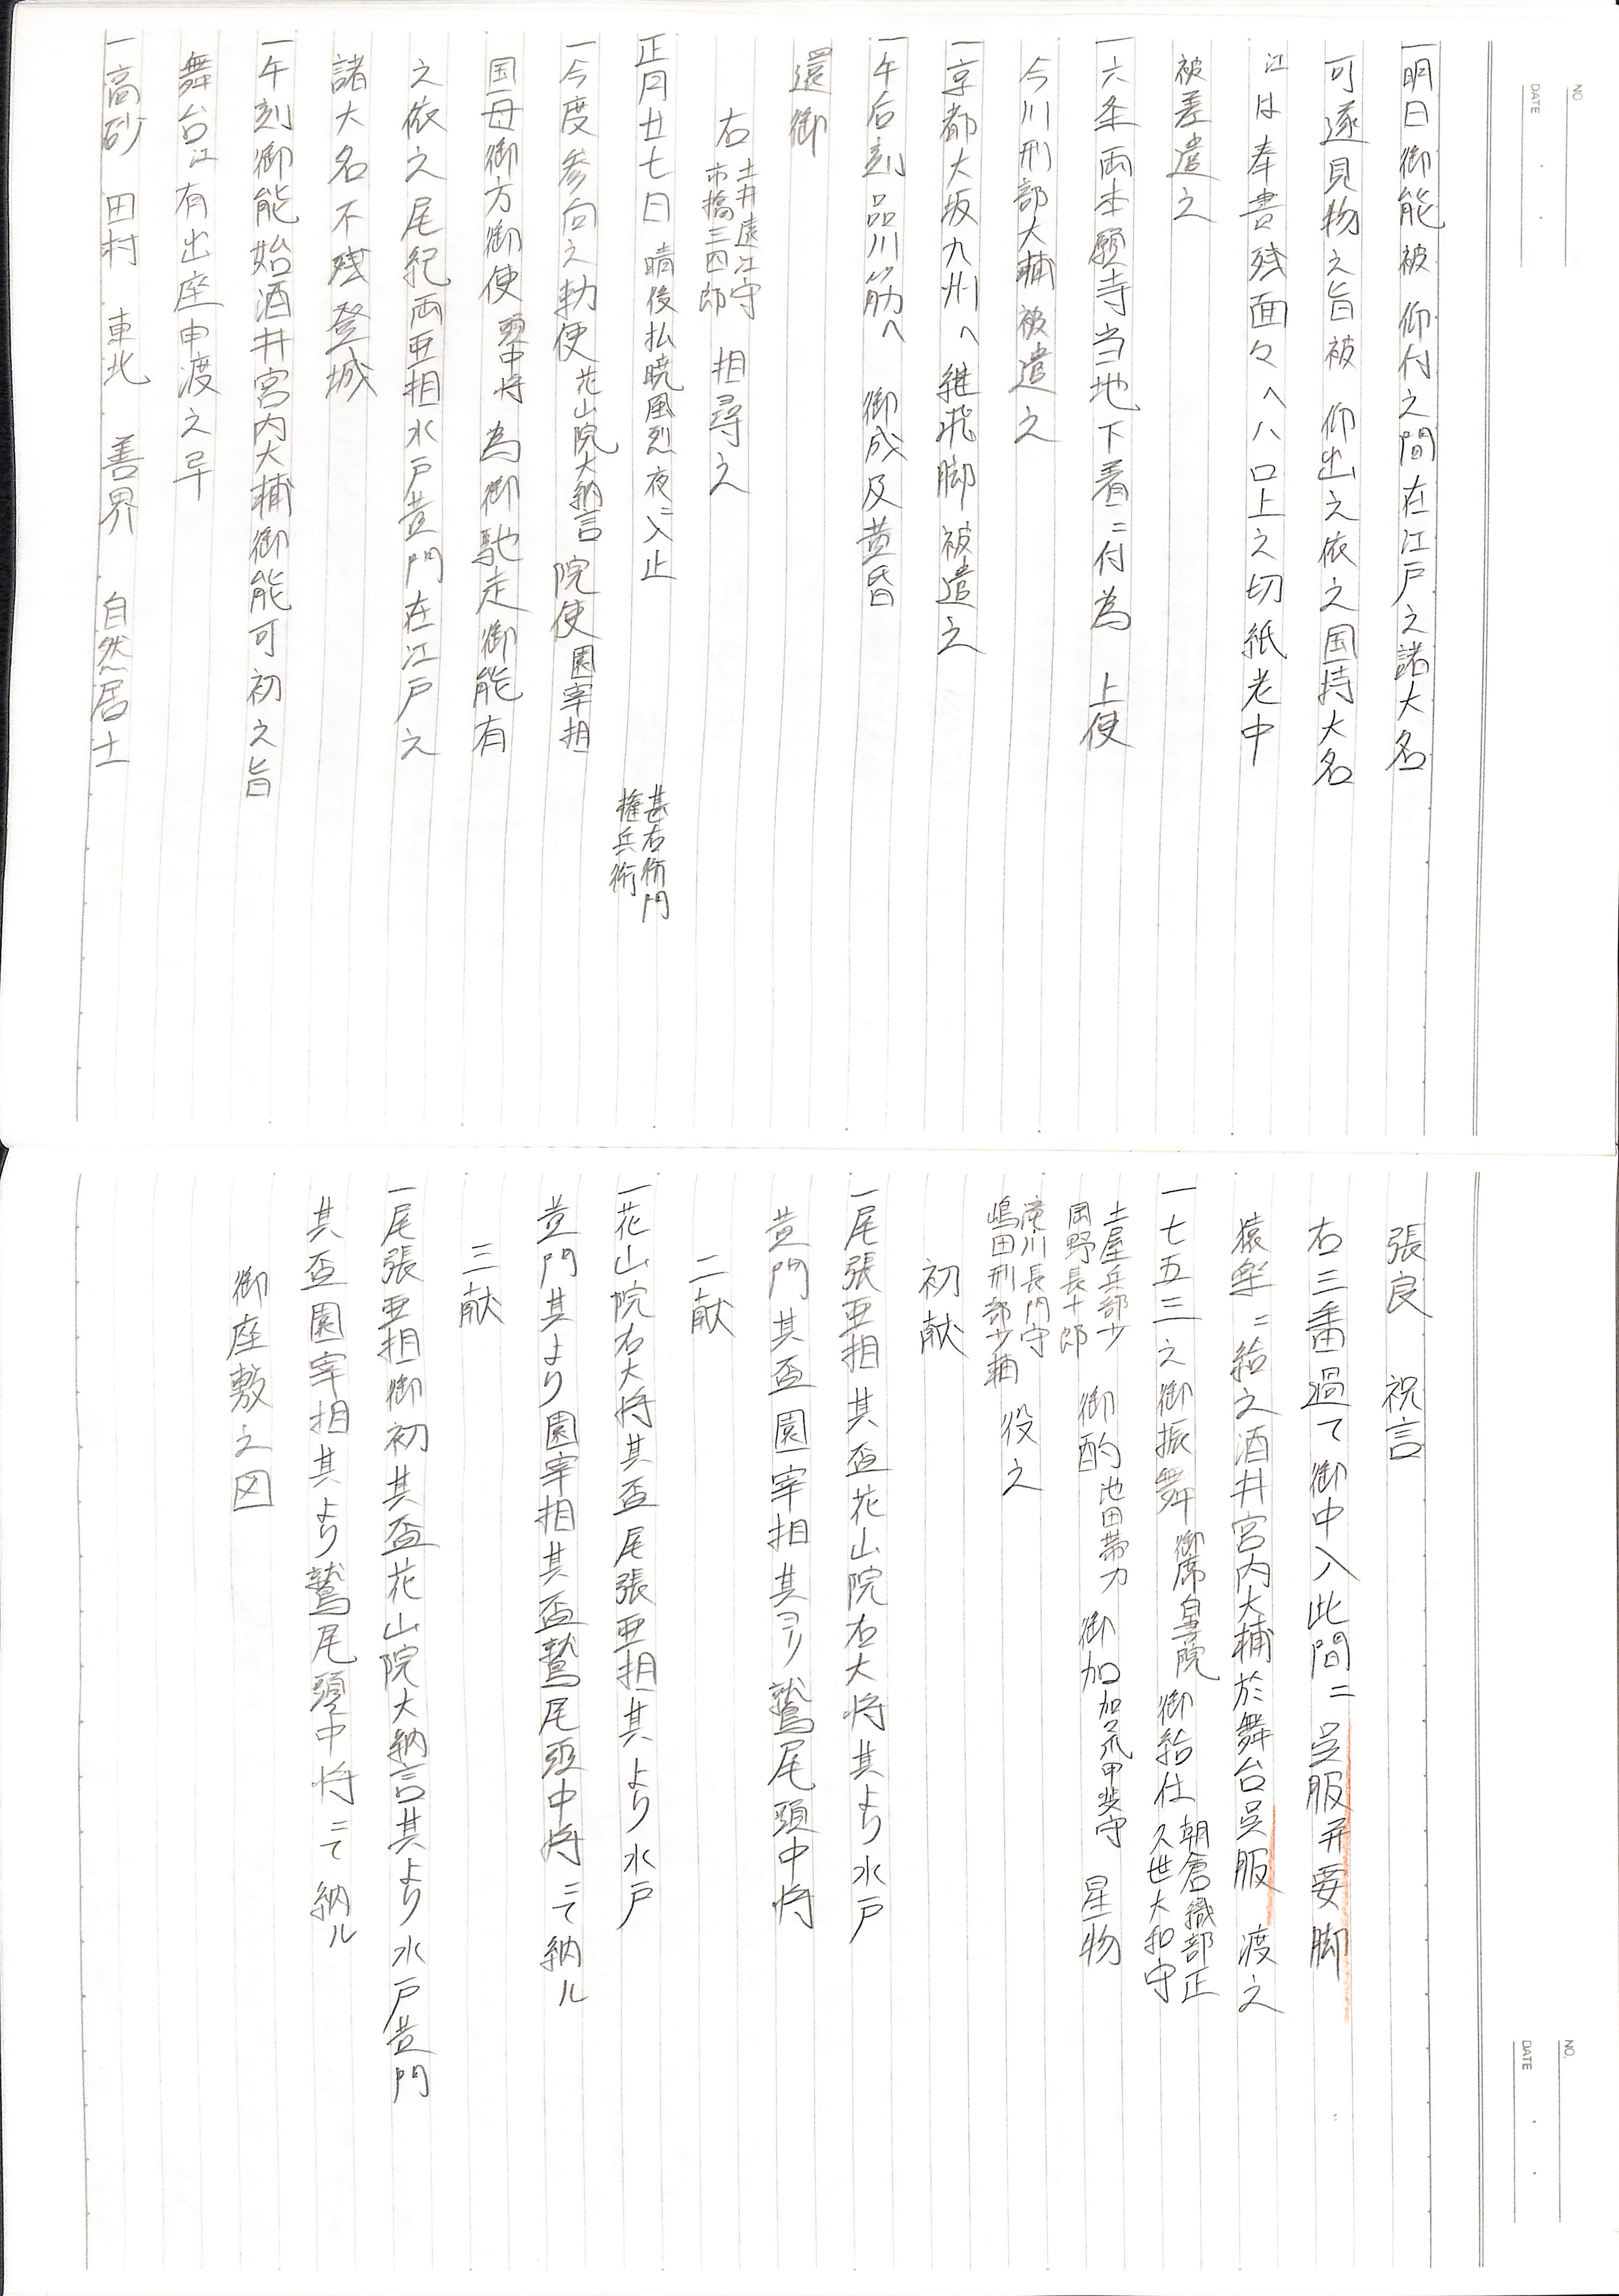 NO
DATE
一明日御能被 仰付之間在江戸之諸大名
可遂見物之旨被 仰出之依之国持大名
江は奉書残面々へハ口上之切紙老中
被差遣之
一六条両本願寺当地下着ニ付為 上使
今川刑部大輔被遣之
一京都大坂九州へ継飛脚被遣之
一午后刻品川筋へ 御成及黄昏
還御
右 土井遠江守 市橋三四郎 相尋之
正月廿七日 晴後払暁風烈夜ニ入止 甚右衛門 権兵衛
一今度参向之勅使 花山院大納言 院使 園宰相
国母御方御使 頭中将 為御馳走御能有
之依之尾紀両亜相水戸黄門在江戸之
諸大名不残登城
一午刻御能始酒井宮内大輔御能可初之旨
舞台江有出座申渡之早
一高砂 田村 東北 善界 自然居士
NO.
DATE
張良 祝言
右三番過て御中入此間ニ呉服并要脚
猿楽ニ給之酒井宮内大輔於舞台呉服 渡之
一七五三之御振舞 御席 院 御給仕 朝倉織部正 久世大和守
土屋兵部少 岡野長十郎 御酌 池田帯刀 御加 加々爪甲斐守 星物
滝川長門守 嶋田刑部少輔 役之
初献
一尾張亜相其盃花山院右大将其より水戸
黄門其盃園宰相其ヨリ鷲尾頭中将
二献
一花山院右大将其盃尾張亜相其より水戸
黄門其より園宰相其盃鷲尾頭中将ニて納ル
三献
一尾張亜相御初其盃花山院大納言其より水戸黄門
其盃園宰相其より鷲尾頭中将ニて納ル
御座敷之図